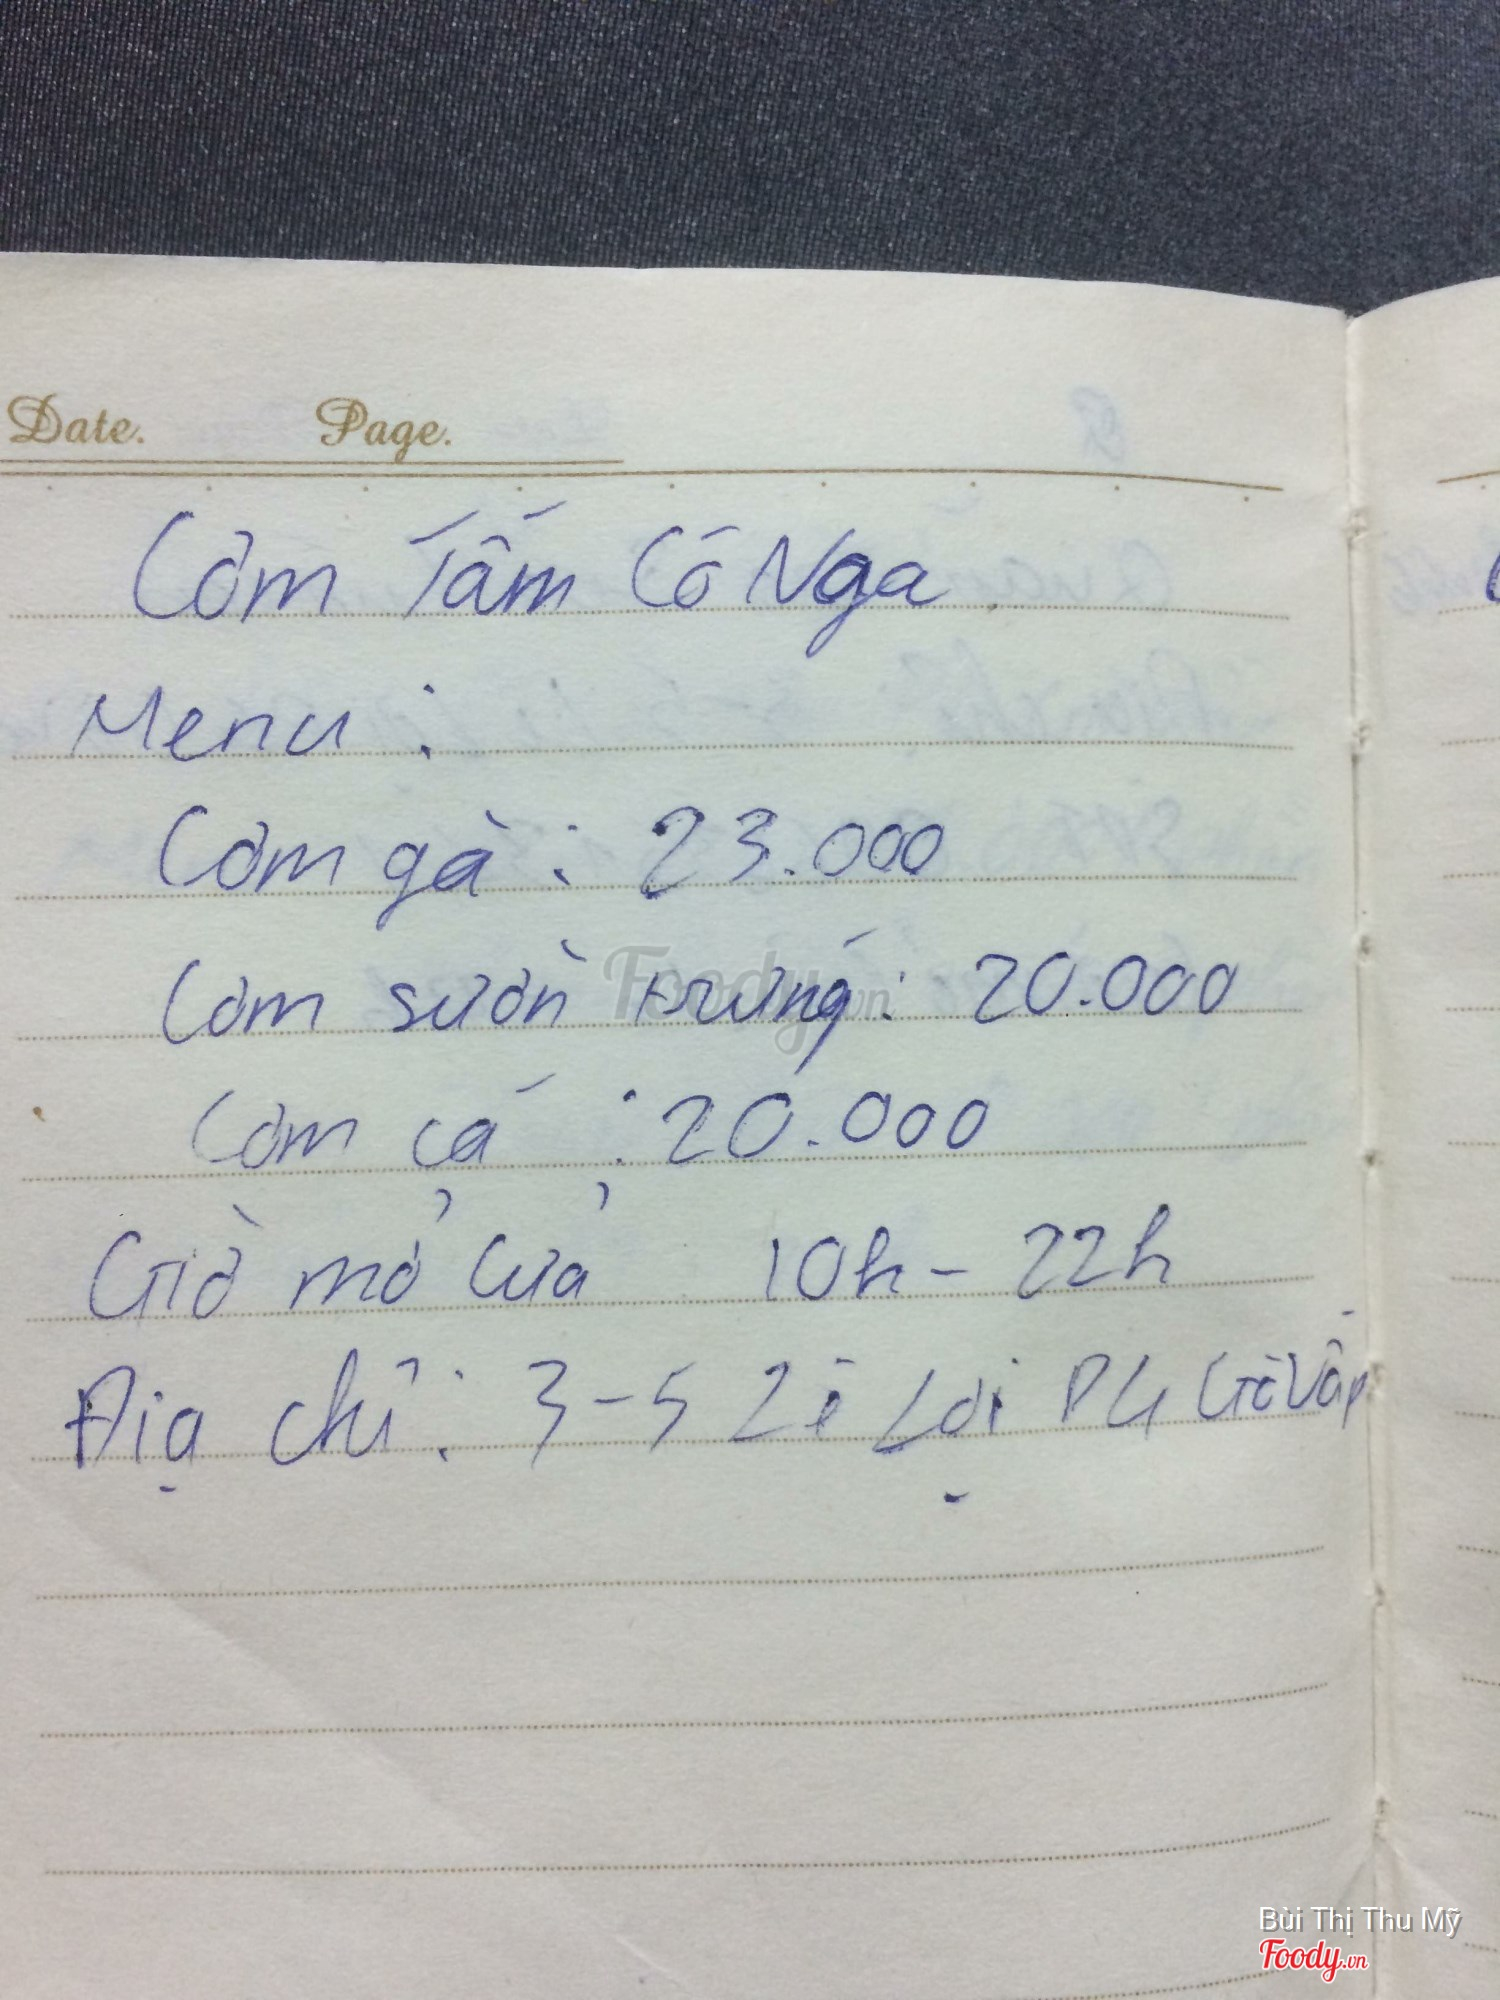 Date. Page.
Cơm Tấm Cô Nga
Menu :
Cơm gà : 23.000
Cơm sườn trứng : 20.000
Cơm cá : 20.000
Giờ mở cửa 10h - 22h
Địa chỉ : 3-5 Lê Lợi P4 Gò Vấp
Foody.vn
Bùi Thị Thu Mỹ
Foody.vn